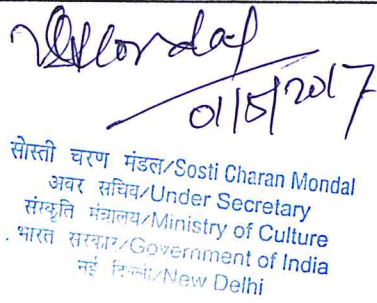 SMondal
01/5/2017
सोस्ती चरण मंडल/Sosti Charan Mondal
अवर सचिव/Under Secretary
संस्कृति मंत्रालय/Ministry of Culture
भारत सरकार/Government of India
नई दिल्ली/New Delhi